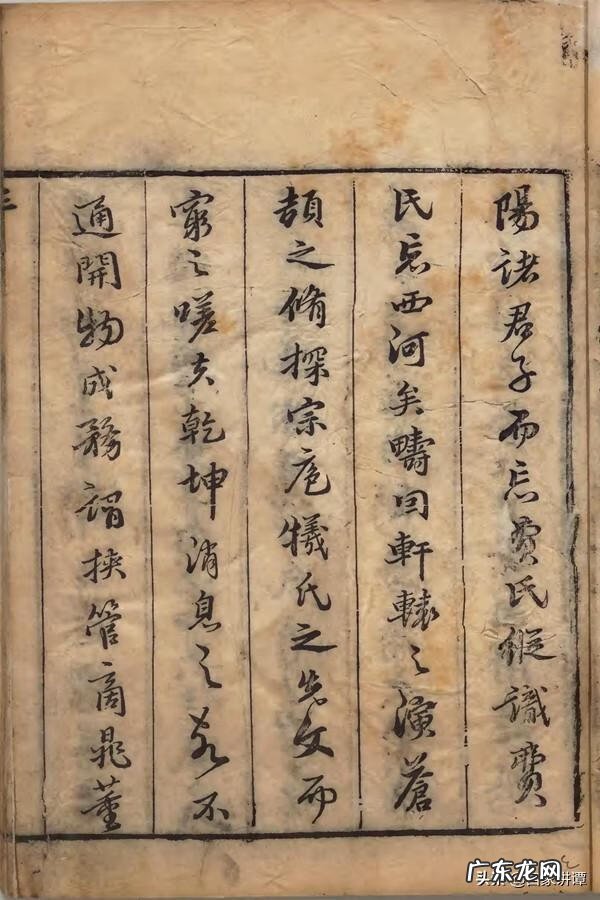 陽諸君子而忘費氏縱識費
氏忘西河矣疇曰軒轅之演蒼
頡之脩探宗庖犧氏之先文而
窮之嗟夫乾坤消息之故不
通開物成務謂挾管商晁董
广东龙网